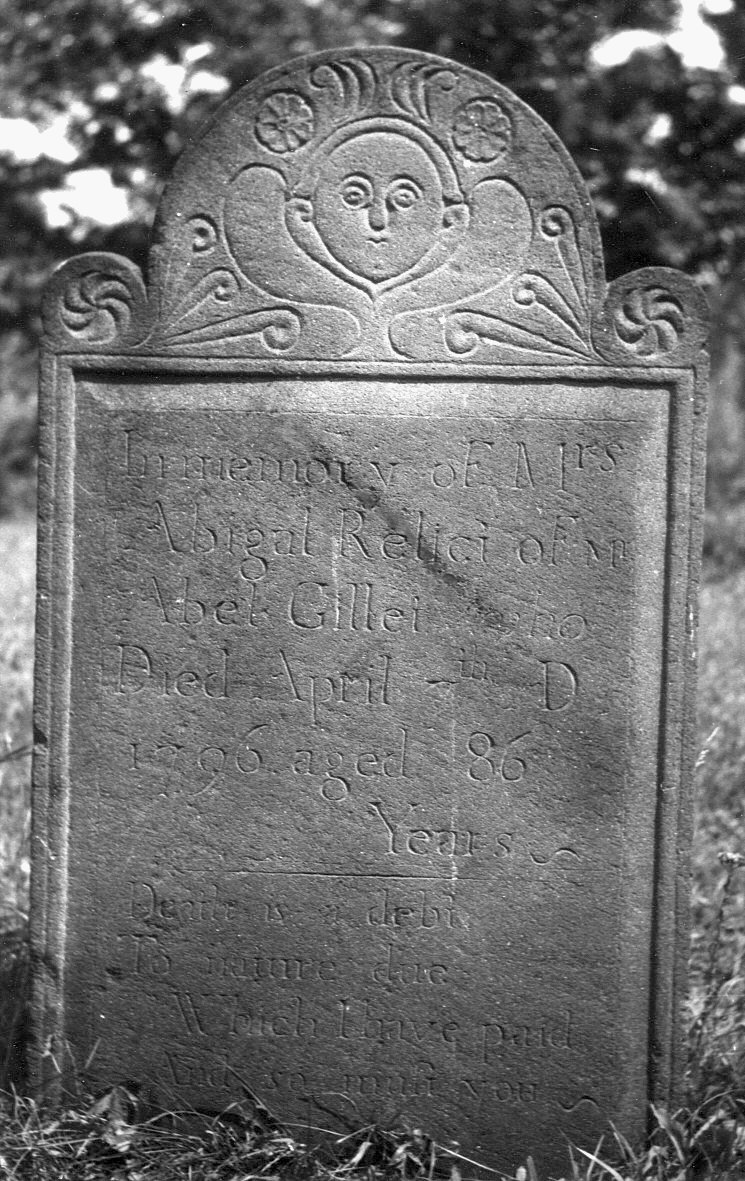 In memory of Mrs
Abigal Relict of Mr
Abel Gillet who
Died April 7th D
1796 aged 86
Years
Death is a debt
To nature due
Which I have paid
And so must you